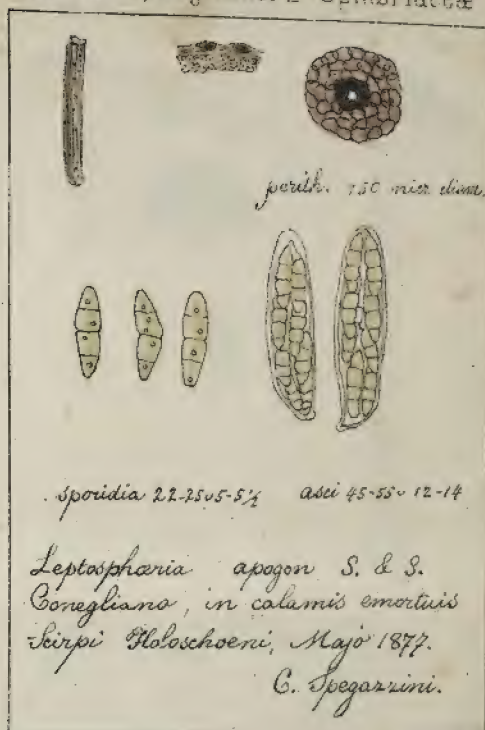 perith. 150 micr diam.
sporidia 22-25 v 5-5½ asci 45-55 v 12-14
Leptosphæria apogon S. & S.
Conegliano, in calamis emortuis
Scirpi Holoschoeni, Majo 1877.
C. Spegazzini.